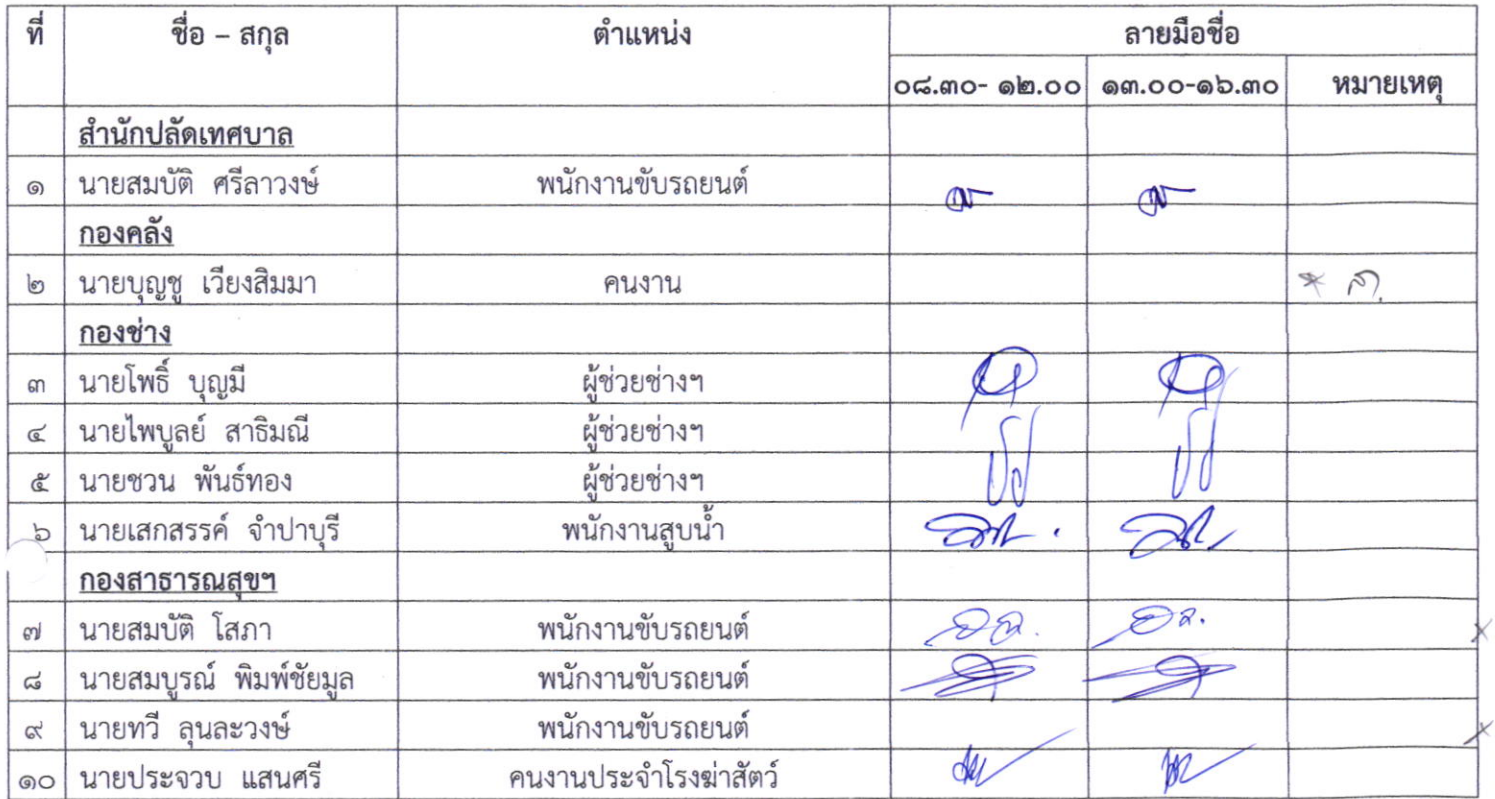 ที่ ชื่อ – สกุล ตำแหน่ง ลายมือชื่อ
๐๘.๓๐- ๑๒.๐๐ ๑๓.๐๐-๑๖.๓๐ หมายเหตุ
สำนักปลัดเทศบาล
๑ นายสมบัติ ศรีลาวงษ์ พนักงานขับรถยนต์
กองคลัง
๒ นายบุญชู เวียงสิมมา คนงาน
กองช่าง
๓ นายโพธิ์ บุญมี ผู้ช่วยช่างฯ
๔ นายไพบูลย์ สาธิมณี ผู้ช่วยช่างฯ
๕ นายชวน พันธ์ทอง ผู้ช่วยช่างฯ
๖ นายเสกสรรค์ จำปาบุรี พนักงานสูบน้ำ
กองสาธารณสุขฯ
๗ นายสมบัติ โสภา พนักงานขับรถยนต์
๘ นายสมบูรณ์ พิมพ์ชัยมูล พนักงานขับรถยนต์
๙ นายทวี ลุนละวงษ์ พนักงานขับรถยนต์
๑๐ นายประจวบ แสนศรี คนงานประจำโรงฆ่าสัตว์